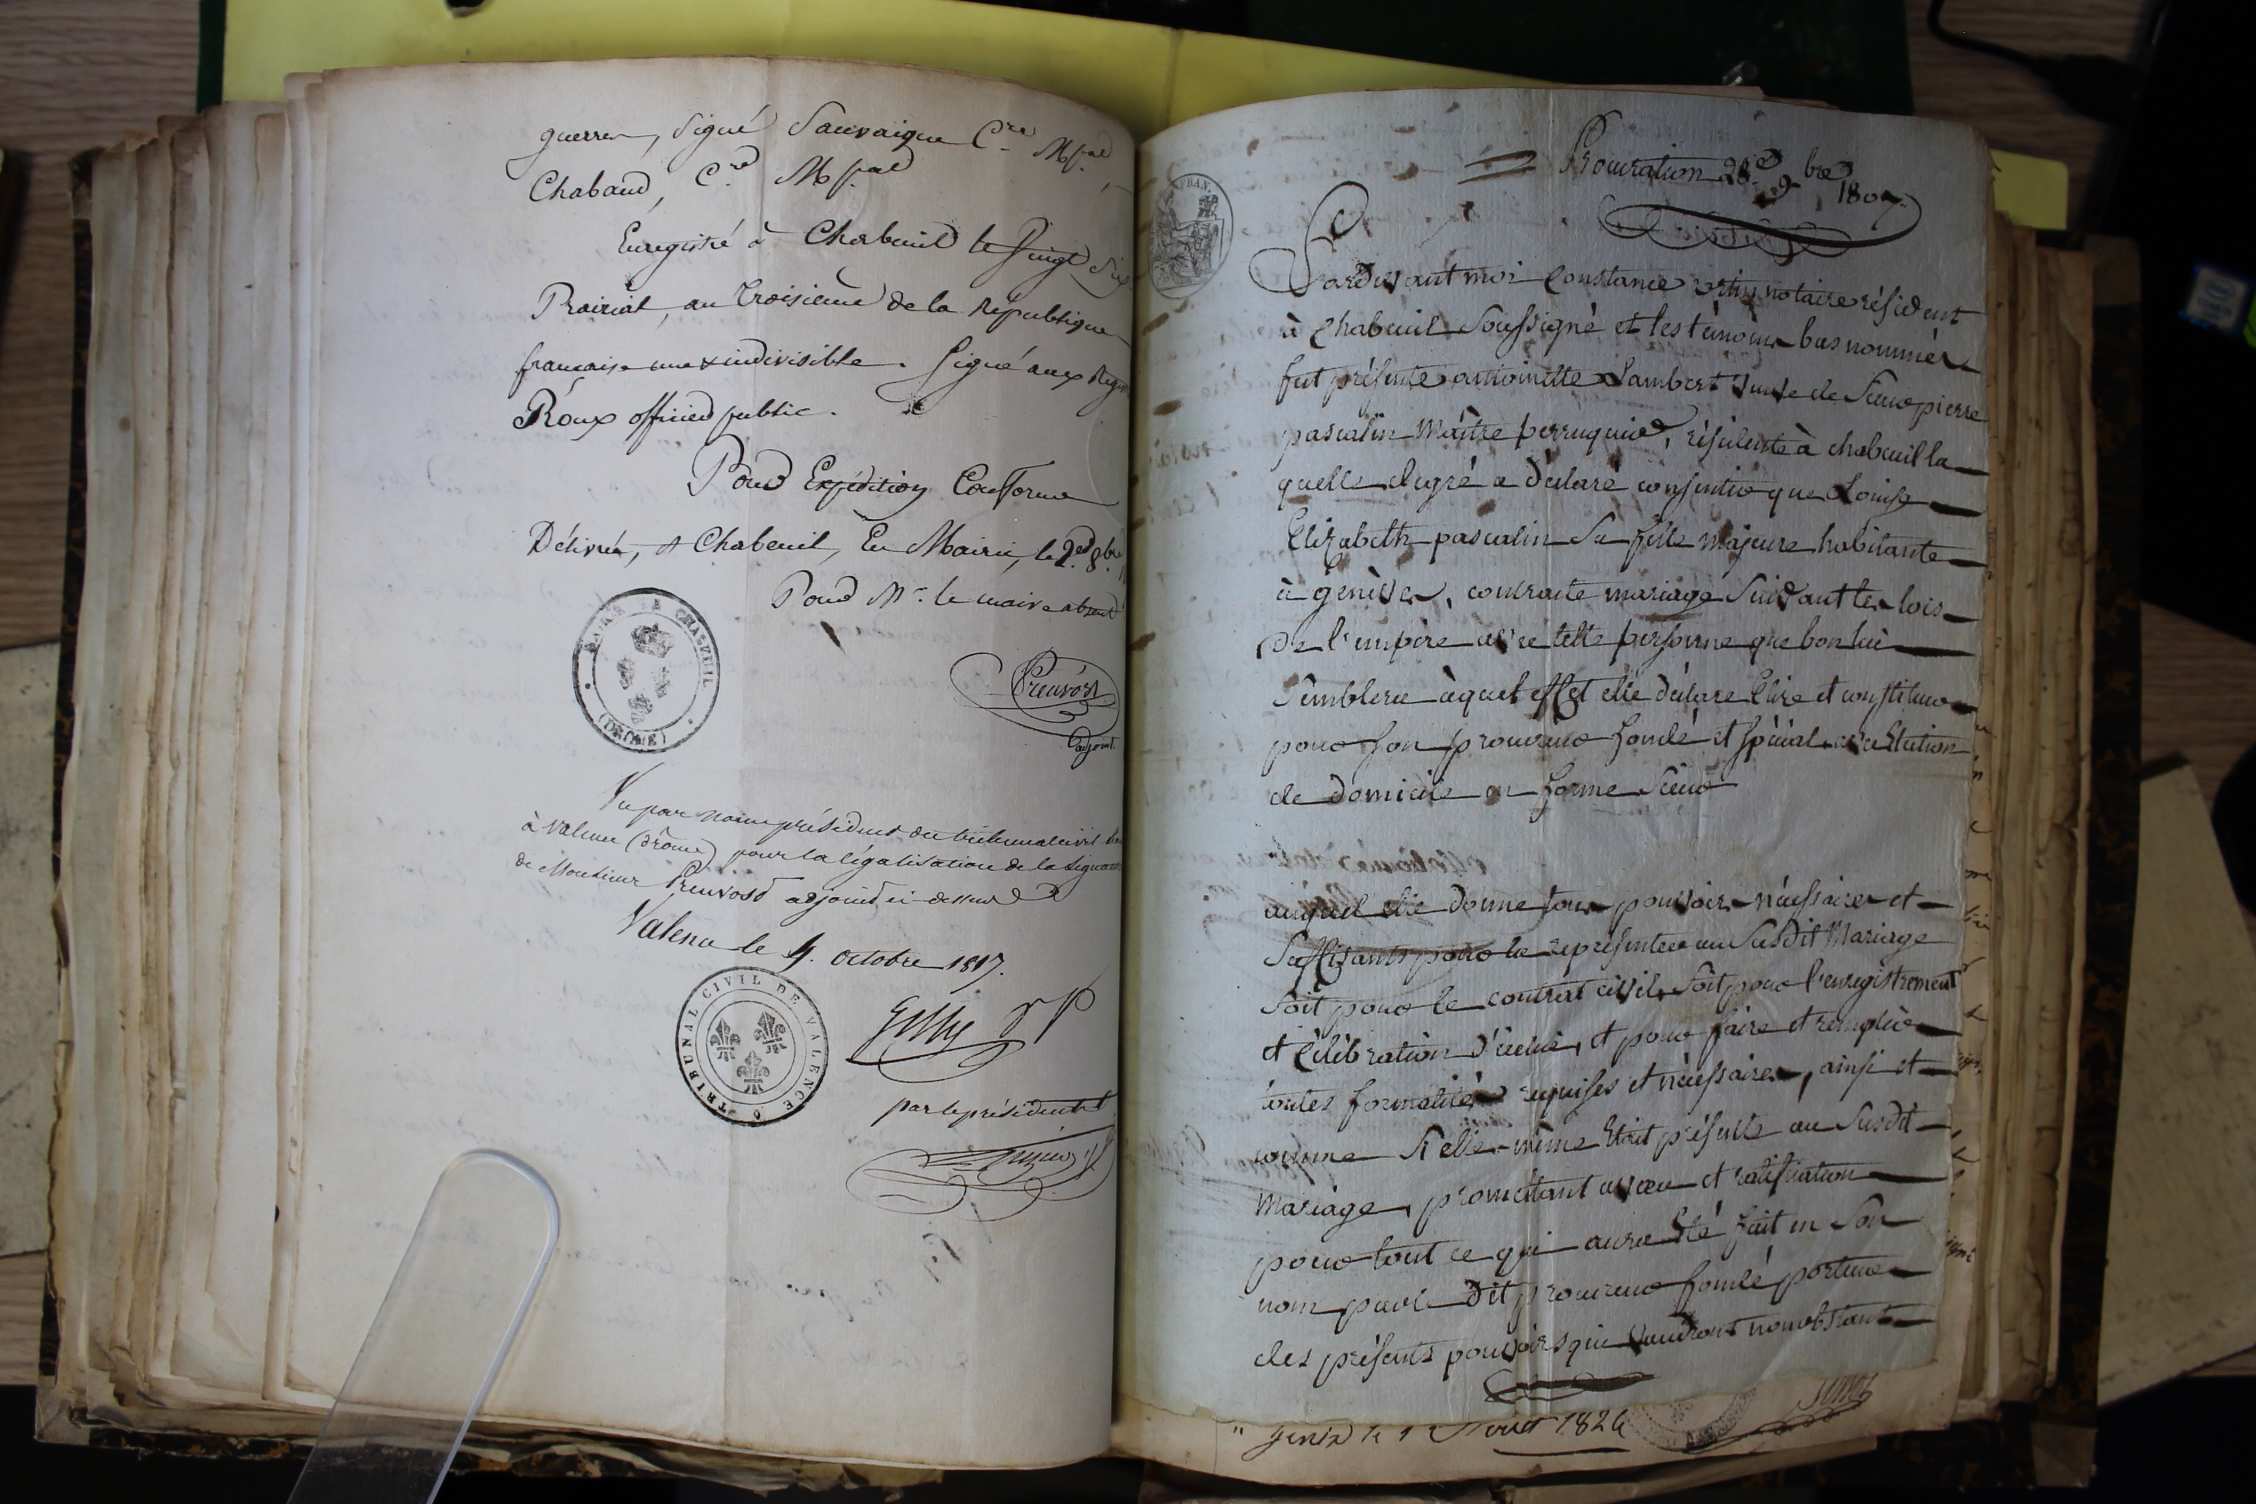 guerres, signé Sauvaigue C.re M.pal,
Chabaud, C.re M.pal
Enregistré à Chabeuil le Vingt Six
Prairial, an troisieme de la République
française une & indivisible. Signé aux Reg
Roux officier public.
Pour Expédition Conforme
Délivrée, à Chabeuil, En Mairie, le 2 8.bre
Pour Mr. le maire absent
Preuvost
adjoint.
MAIRIE DE CHABEUIL
(DROME)
Vu par nous président du tribunal civil
à Valence (drôme) pour la légalisation de la signature
de Monsieur Preuvost adjoint ci-dessus
Valence le 4. octobre 1817.
TRIBUNAL CIVIL DE VALENCE
par le président
Procuration 28 9bre 1807.
Pardevant moi Constance notaire résident
à Chabeuil Soussigné et les témoins bas nommés
fut présente antoinette Lambert veuve de Sieur pierre
pascalin Maître perruquier, résidente à chabeuil la
quelle de gré a déclaré consentir que Louise
Elizabeth pascalin Sa fille majeure habitante
à genève, contracte mariage Suivant les lois
De l'empire avec telle personne que bon lui
Semblera àquel effet elle déclare Elire et constituer
pour Son procureur fondé et spécial avec Election
de domicile en forme Sieur
auquel elle donne tous pouvoirs nécessaires et
Suffisants pour la représenter au Susdit Mariage
Soit pour le contrat civil, Soit pour l'enregistrement
et Célébration d'icelui, et pour faire et remplir
toutes formalités requises et nécessaires, ainsi et
comme Si elle-même Etoit présente au Susdit
Mariage, promettant aveu et ratification
pour tout ce qui aura Eté fait en Son
nom par le Dit procureur fondé porteur
des présents pouvoirs qui vaudront nonobstant
1824